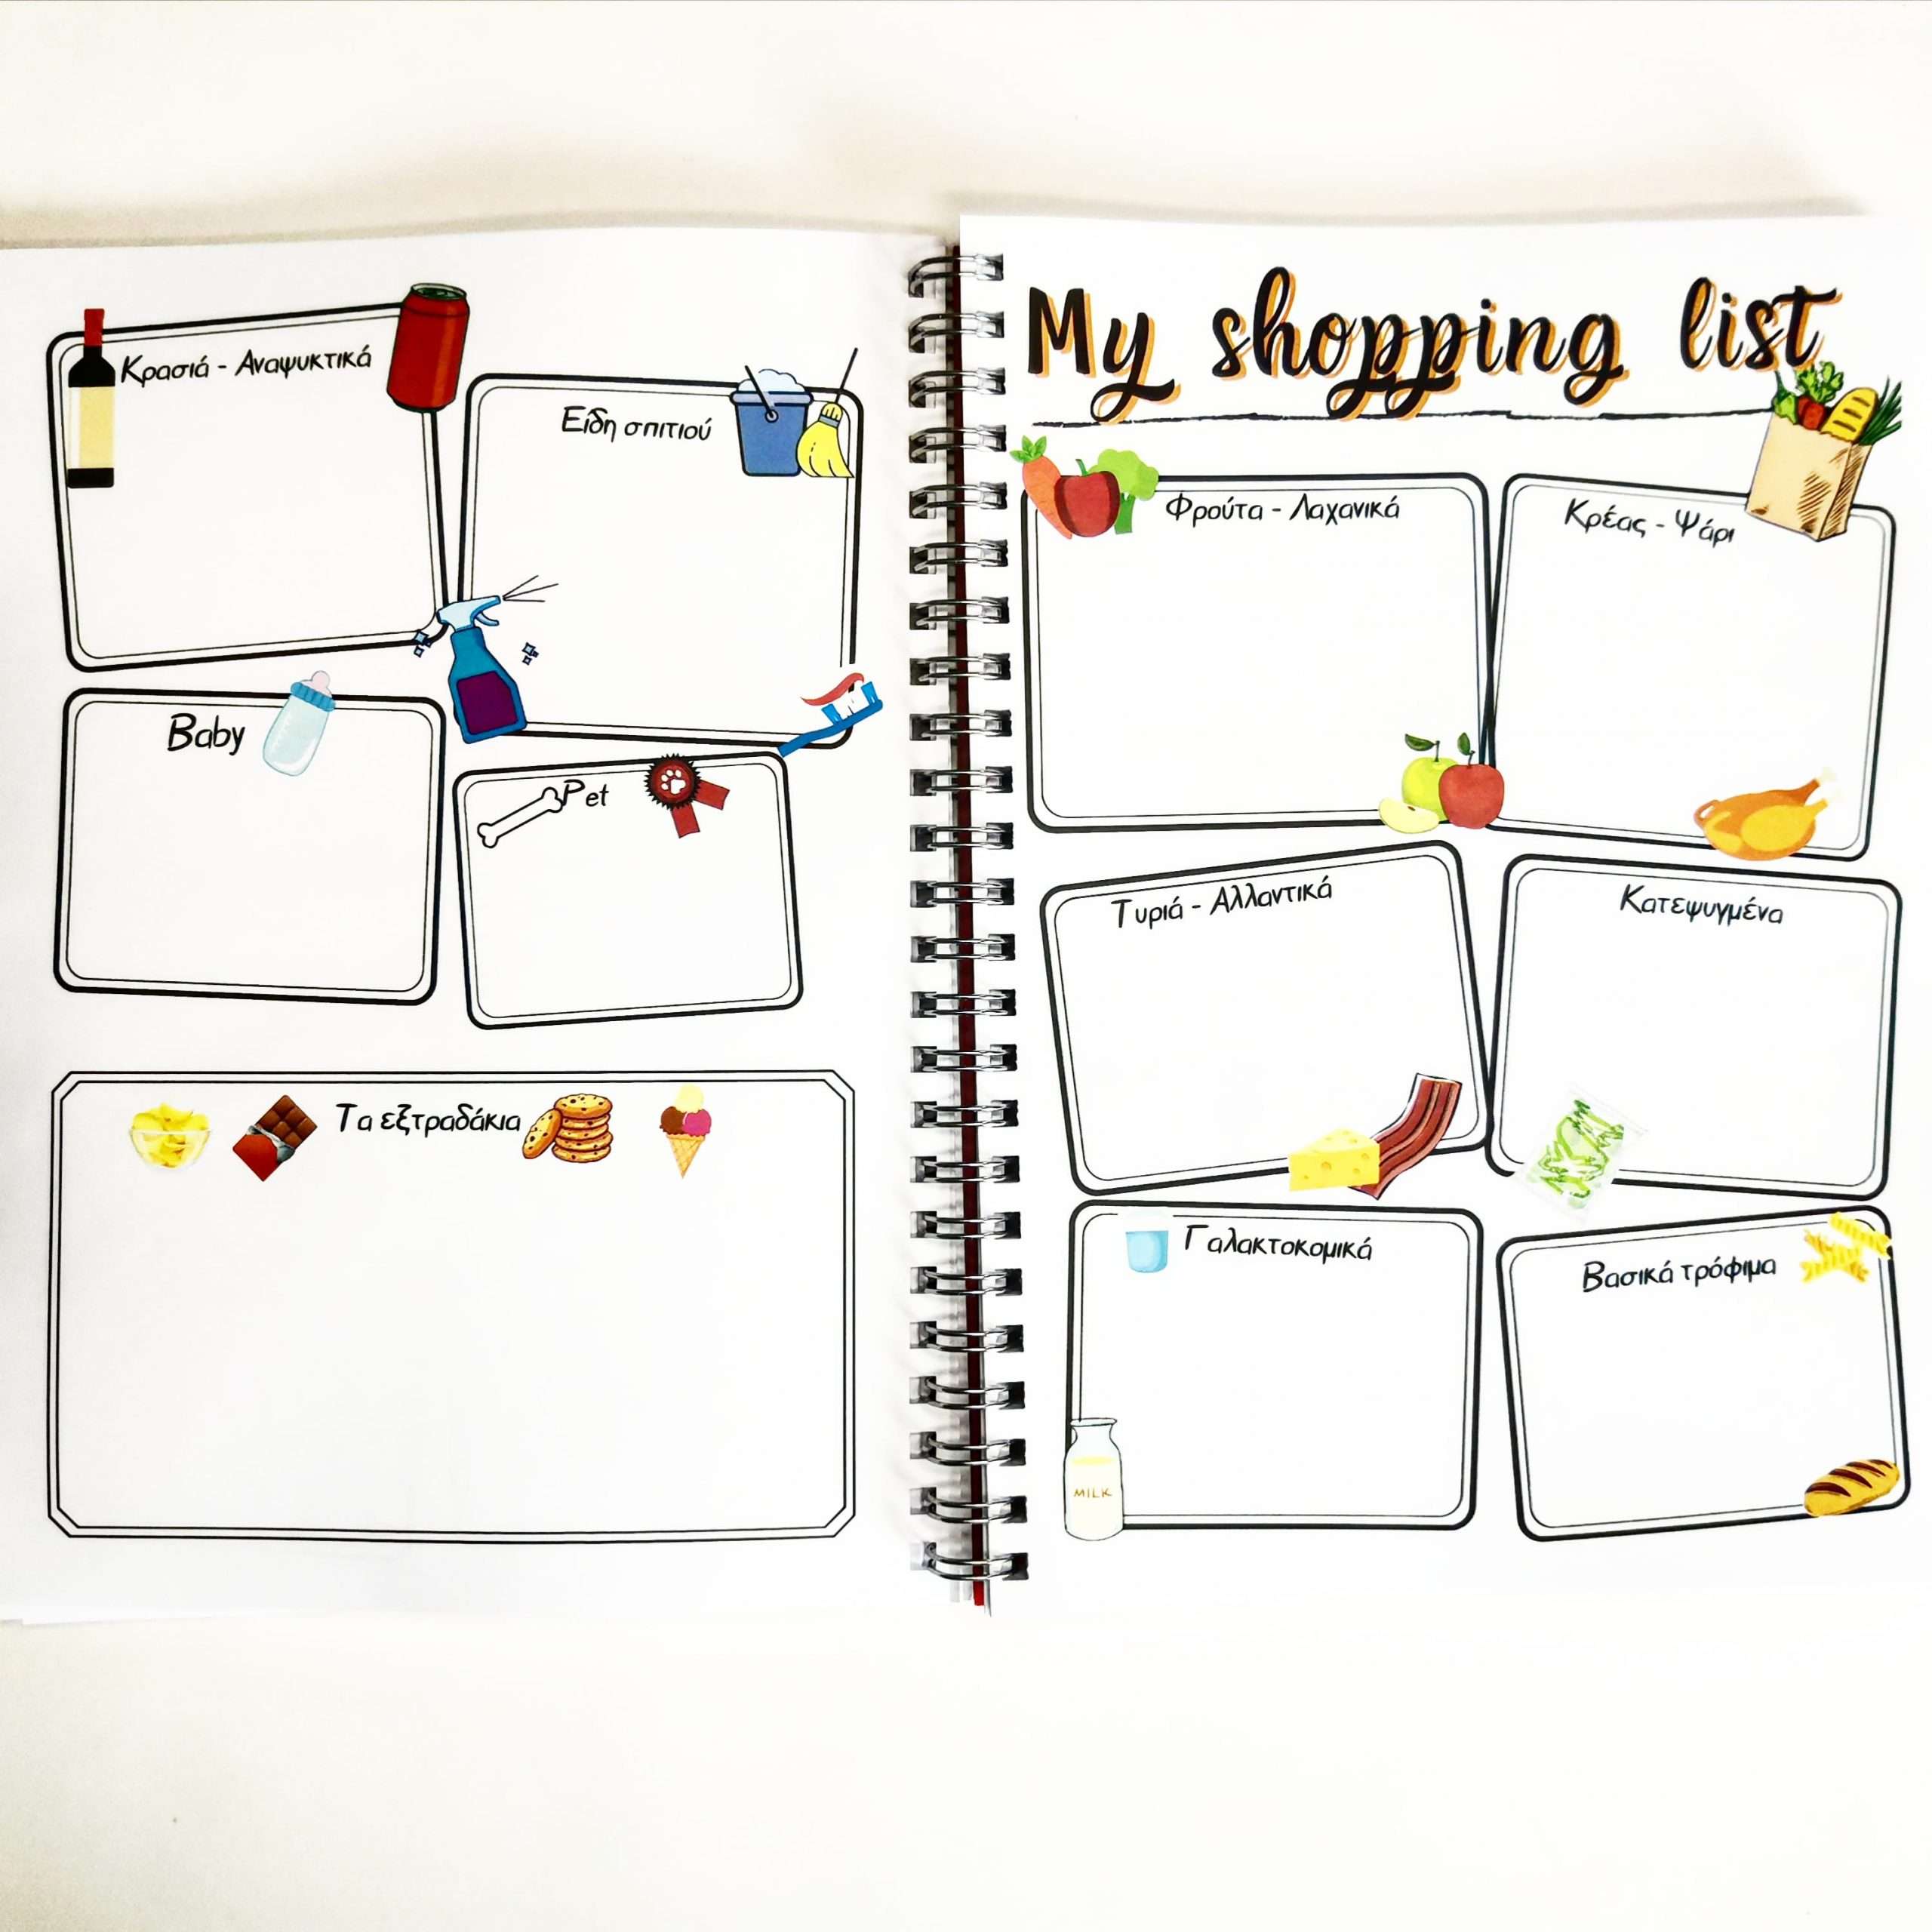 Κρασιά - Αναψυκτικά
Είδη σπιτιού
Baby
Pet
Τα εξτραδάκια
My shopping list
Φρούτα - Λαχανικά
Κρέας - Ψάρι
Τυριά - Αλλαντικά
Κατεψυγμένα
Γαλακτοκομικά
Βασικά τρόφιμα
MILK